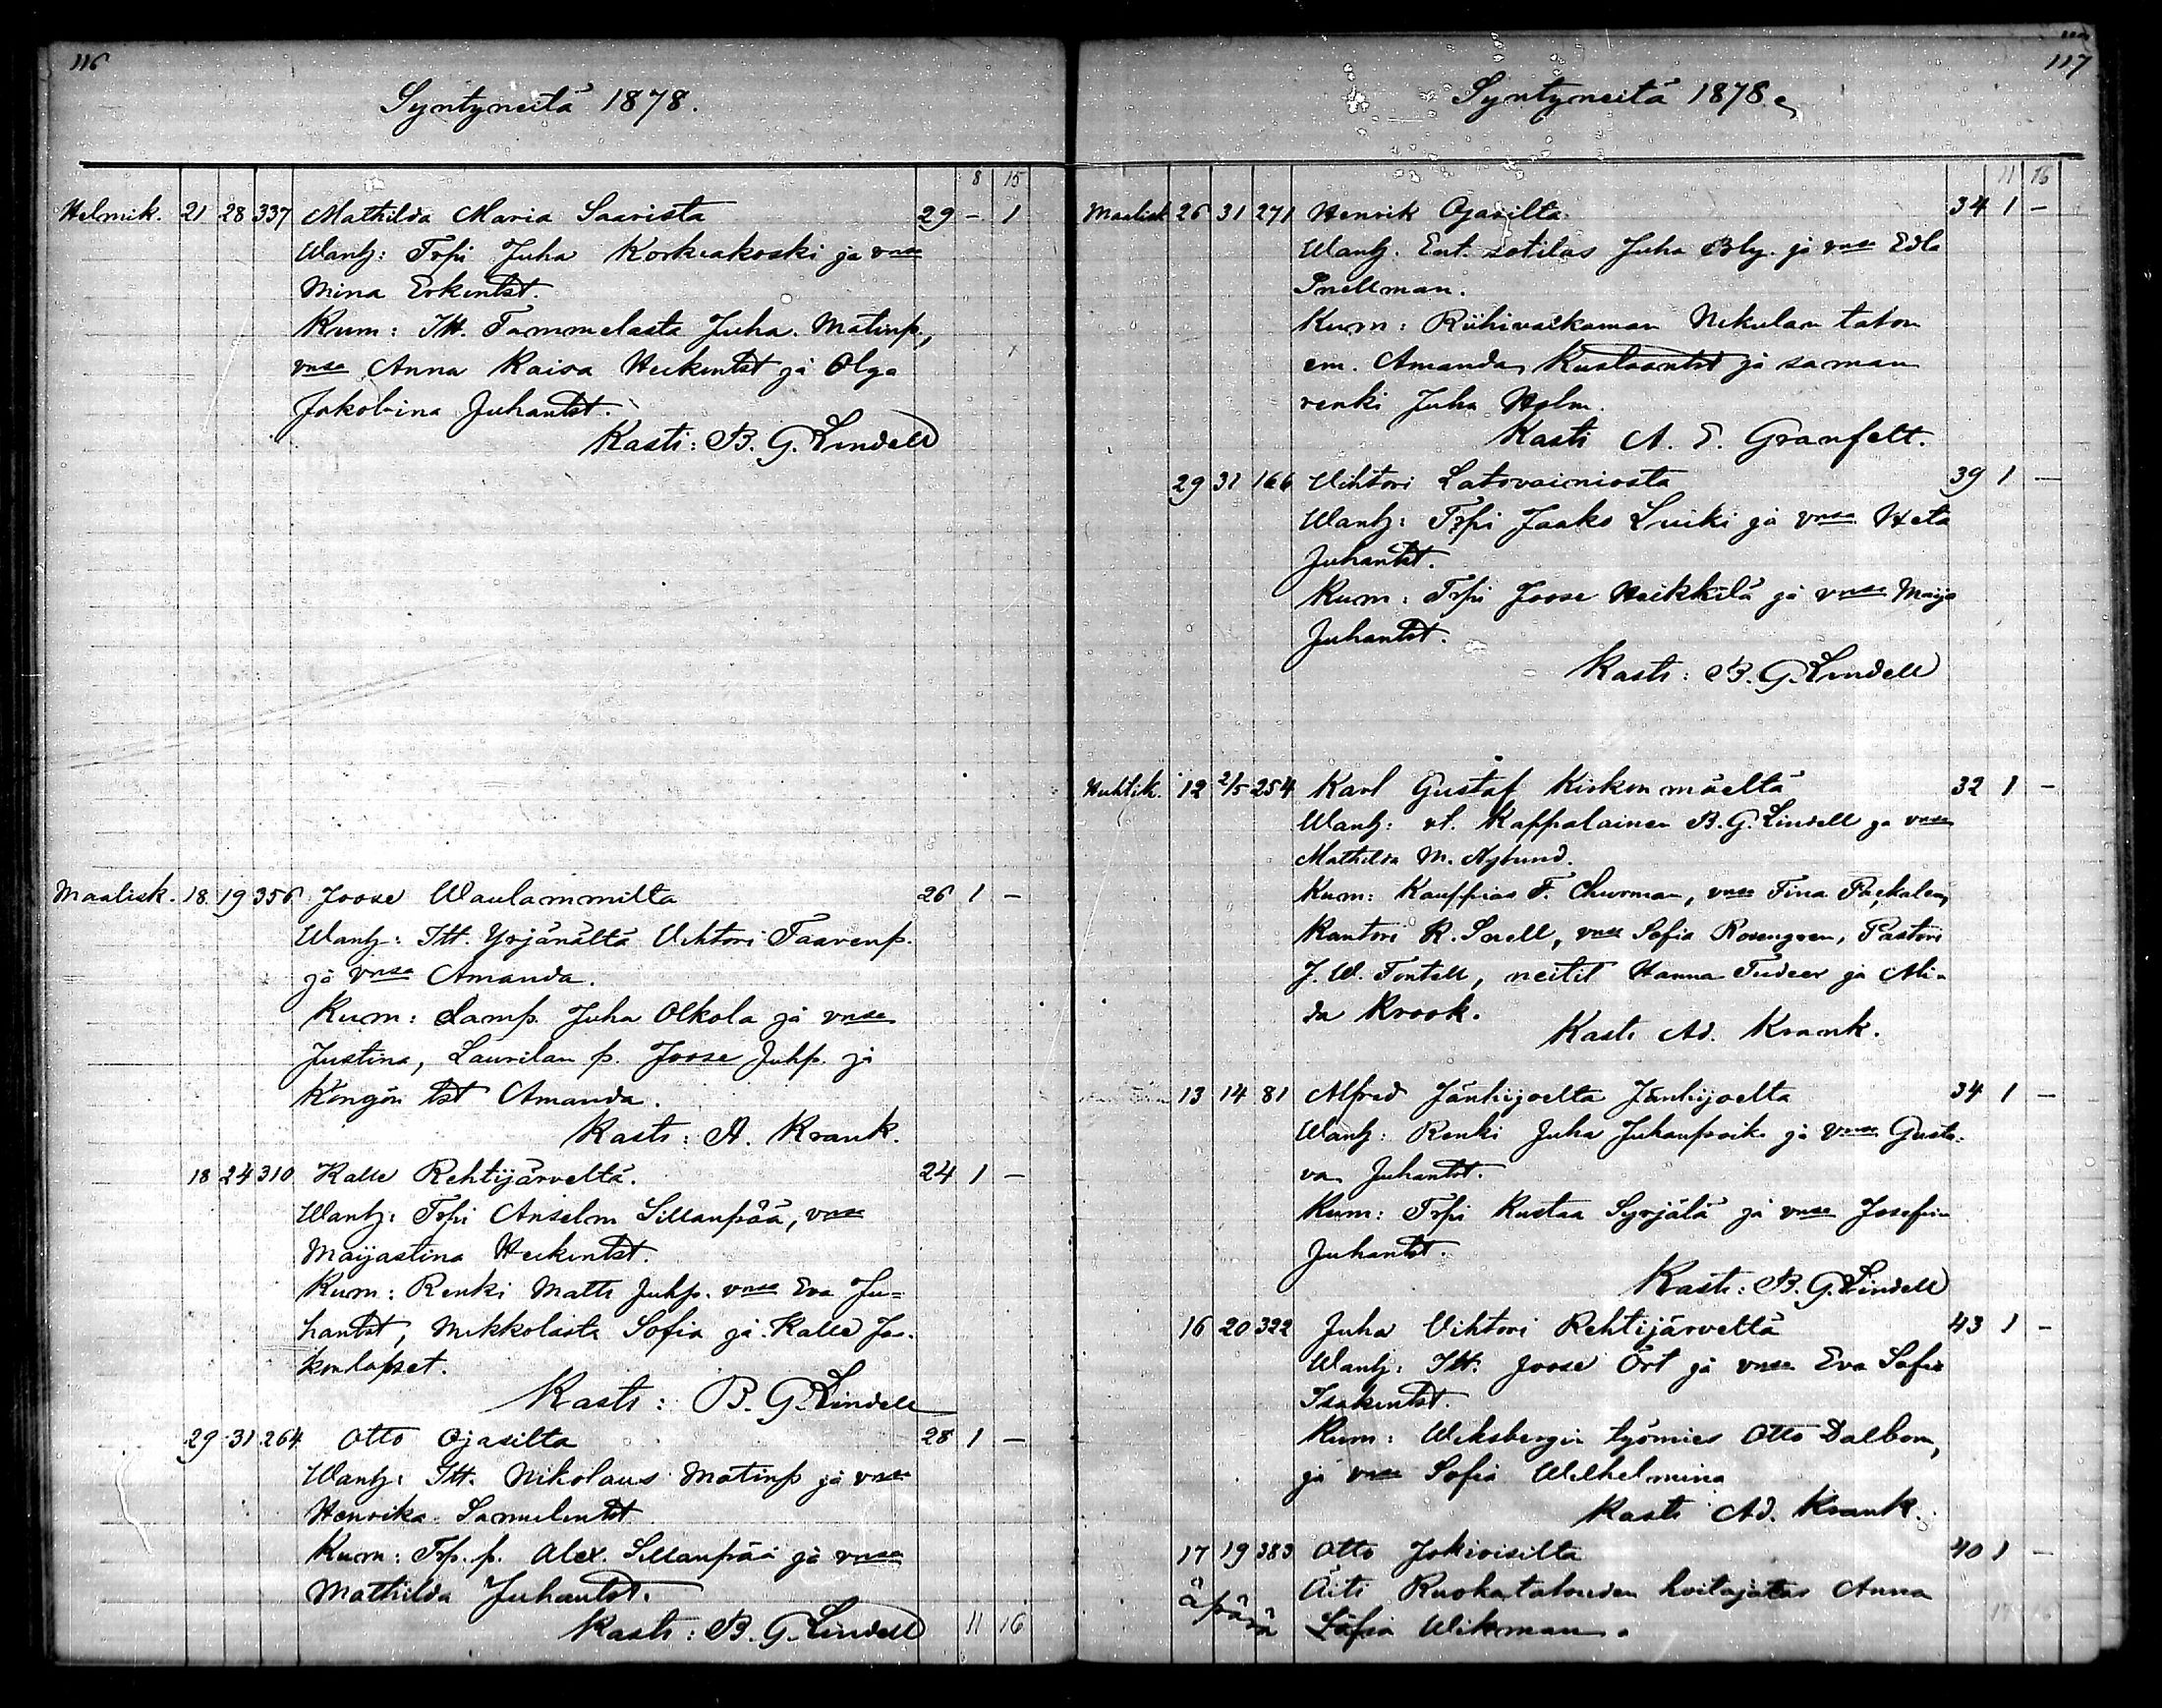 116
Syntyneitä 1878.
8 15
Helmik. 21 28 337 Mathilda Maria Saarista 29 - 1
Wanh: Trpi Juha Korkeakoski ja vmsa
Mina Erkintst.
Kum: Itt. Tammelasta Juha Matinp.,
vmsa Anna Kaisa Heikintst ja Olga
Jakobina Juhantst.
Kasti: B. G. Lindell
Maalisk. 18 19 356 Joose Waulammilta 26 1 -
Wanh: Itt. Yrjänältä Vihtori Taavenp.
ja vmsa Amanda.
Kum: Lamp. Juha Olkola ja vmsa
Justina, Laurilan p. Joose Juhp. ja
Köngön tst Amanda.
Kasti: A. Krank.
18 24 310 Kalle Rehtijärveltä. 24 1 -
Wanh: Trpi Anselm Sillanpää, vmsa
Maijastina Heikintst.
Kum: Renki Matti Juhp. vmsa Eva Ju=
hantst, Mikkolasta Sofia ja Kalle Ja-
konlapset.
Kasti: B. G. Lindell
29 31 264 Otto Ojasilta 28 1 -
Wanh: Itt. Nikolaus Matinp ja vmsa
Henrika Samulintst
Kum: Trp. p. Alex. Sillanpää ja vmsa
Mathilda Juhantst.
Kasti: B. G. Lindell 11 16
117
Syntyneitä 1878.
11 16
Maalisk 26 31 271 Henrik Ojasilta 34 1 -
Wanh. Ent. sotilas Juha Bly. ja vmsa Edla
Snellman.
Kum: Riihivalkaman Nikulan talon
em. Amanda Kustaantst ja saman
renki Juha Holm.
Kasti A. E. Granfelt.
29 31 166 Vihtori Latovainiosta 39 1 -
Wanh: Trpi Jaako Luiki ja vmsa Heta
Juhantst.
Kum: Trpi Joose Heikkilä ja vmsa Maija
Juhantst.
Kasti: B. G. Lindell
Huhtik. 12 2/5 254 Karl Gustaf Kirkonmäeltä 32 1 -
Wanh: vt. Kappalainen B. G. Lindell ja vmsa
Mathilda M. Nylund.
Kum: Kauppias F. Thurman, vmsa Fina Packalen,
Kantori K. Snell, vmsa Sofia Rosengren, Pastori
J. W. Fontell, neitit Hanna Tudeer ja Ali-
da Krook.
Kasti Ad. Krank.
13 14 81 Alfred Jänhijoelta Jänhijoelta 34 1 -
Wanh: Renki Juha Juhanpoika ja vmsa Gusta-
va Juhantst.
Kum: Trpi Kustaa Syrjälä ja vmsa Josefin
Juhantst.
Kasti: B. G. Lindell
16 20 322 Juha Vihtori Rehtijärveltä 43 1 -
Wanh: Itt. Joose Ört ja vmsa Eva Sofia
Isakintst.
Kum: Wiksbergin työmies Otto Dalbom,
ja vmsa Sofia Wilhelmina
Kasti Ad. Krank.
17 19 383 Otto Jokioisilta 40 1 -
äpärä Äiti Ruokatalouden hoitajatar Anna
Sofia Wikman.